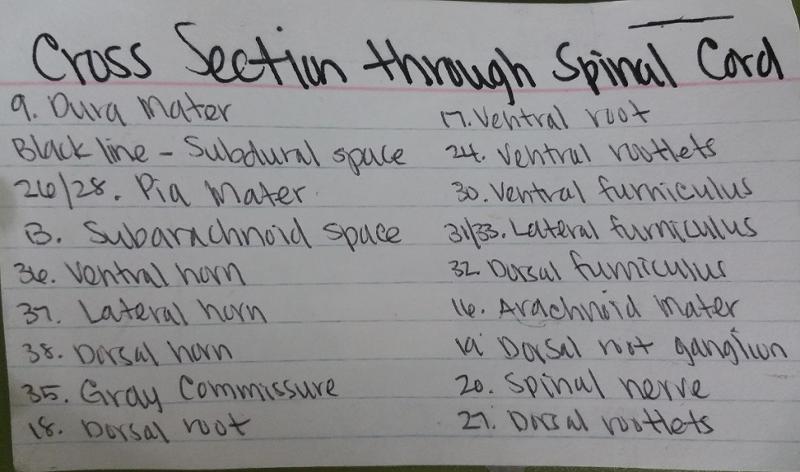 Cross Section through Spinal Cord
9. Dura Mater
Black line - Subdural space
26/28. Pia Mater
B. Subarachnoid space
36. Ventral horn
37. Lateral horn
38. Dorsal horn
35. Gray Commissure
18. Dorsal root
17. Ventral root
24. Ventral rootlets
30. Ventral furniculus
31/33. Lateral furniculus
32. Dorsal furniculus
16. Arachnoid mater
19. Dorsal root ganglion
20. Spinal nerve
27. Dorsal rootlets